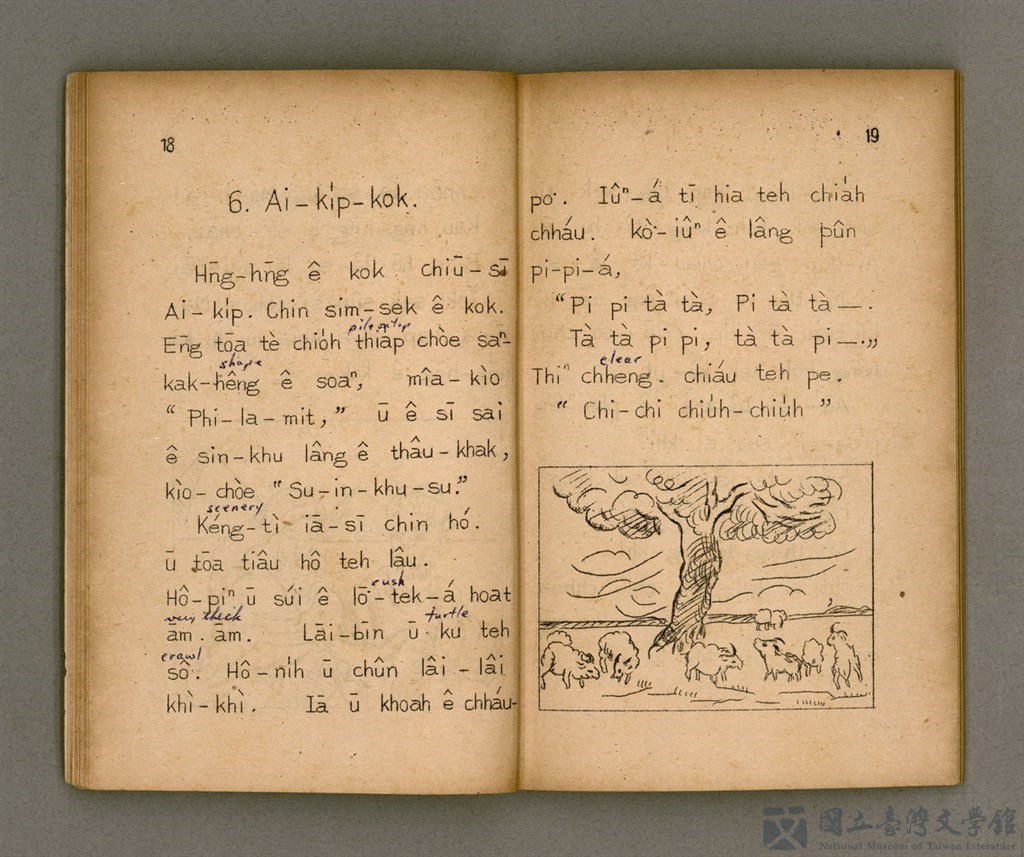 18
6. Ai-ki̍p-kok.
Hn̄g-hn̄g ê kok chiū-sī
Ai-ki̍p. Chin sim-sek ê kok.
pile on top
Ēng tōa tè chio̍h thia̍p chòe saⁿ-
shape
kak-hêng ê soaⁿ, mîa-kìo
"Phi-la-mit," ū ê sī sai
ê sin-khu lâng ê thâu-khak,
kìo-chòe "Su-in-khu-su."
scenery
Kéng-tì iā-sī chin hó.
ū tōa tiâu hô teh lâu.
rush
Hô-piⁿ ū súi ê lô͘-tek-á hoat
very thick turtle
ām-ām. Lāi-bīn ū ku teh
crawl
sô. Hô-ni̍h ū chûn lâi-lâi
khì-khì. Iā ū khoah ê chháu-
19
po͘. Iûⁿ-á tī hia teh chia̍h
chháu. kò͘-iûⁿ ê lâng pûn
pi-pi-á,
"Pi pi tà tà, Pi tà tà —.
Tà tà pi pi, tà tà pi —."
clear
Thiⁿ chheng. chiáu teh pe.
"Chi-chi chiu̍h-chiu̍h"
國立臺灣文學館
National Museum of Taiwan Literature